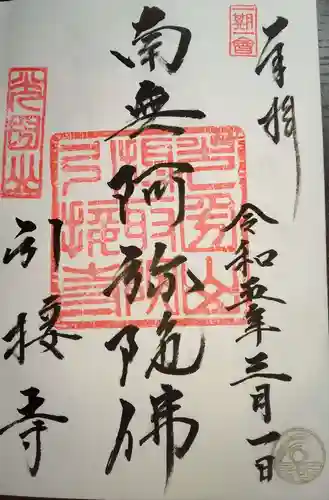 奉拝
一期一會
令和五年三月一日
南無阿弥陀佛
引接寺